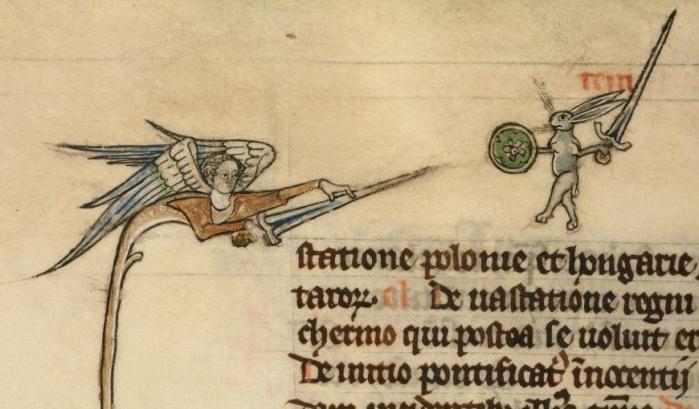 statione polonie et hungarie,
taroꝝ. cl De uastatione regni
chermo qui postea se uoluit et
De initio pontificat᾽ īnocentii